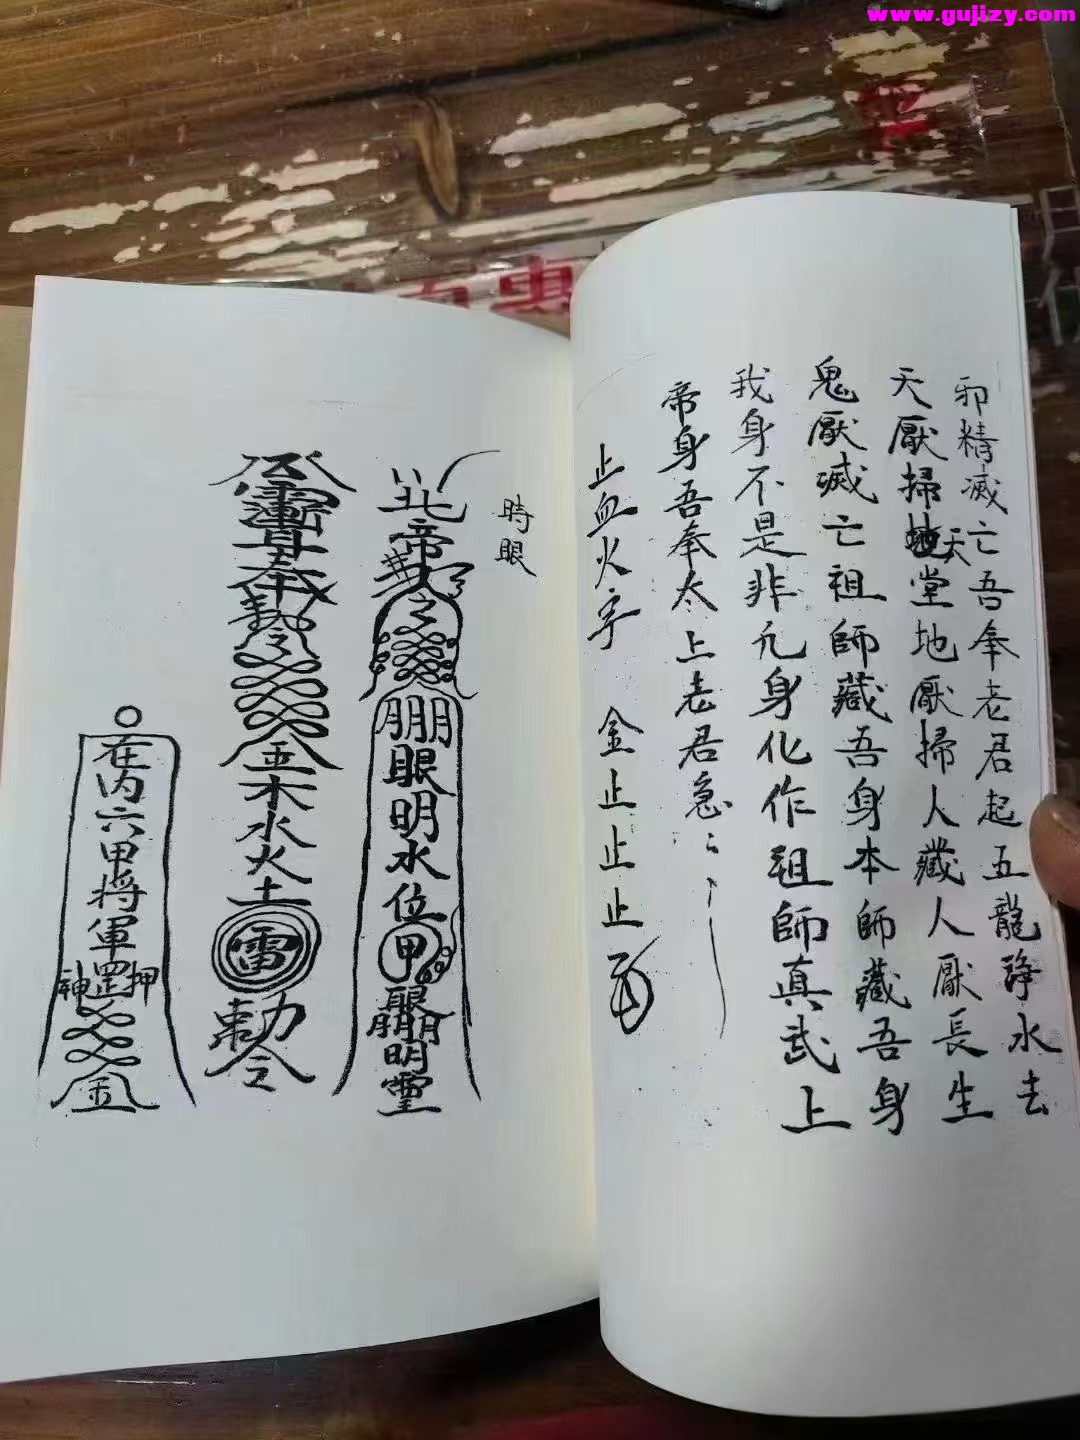 www.gujizy.com
邪精滅亡吾奉老君起五龍諍水去
天厭掃天堂地厭掃人藏人厭長生
鬼厭滅亡祖師藏吾身本師藏吾身
我身不是非凡身化作祖師真武上
帝身吾奉太上老君急
止血火字 金止止止
時眼
北帝
之
眼明水位甲
明靈
奉
令
金木水火土
雷
勅令
在內六甲将軍罡
神 押
金